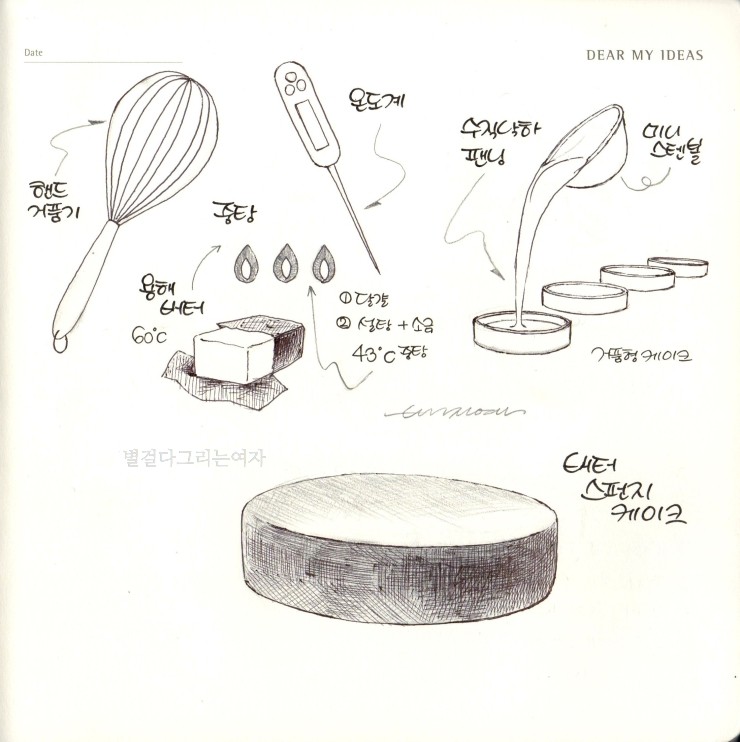 Date
DEAR MY IDEAS
핸드
거품기
온도계
수직낙하
팬닝
미니
스텐볼
중탕
용해
버터
60°C
① 달걀
② 설탕 + 소금
43°C 중탕
거품형 케이크
별걸다그리는여자
버터
스펀지
케이크